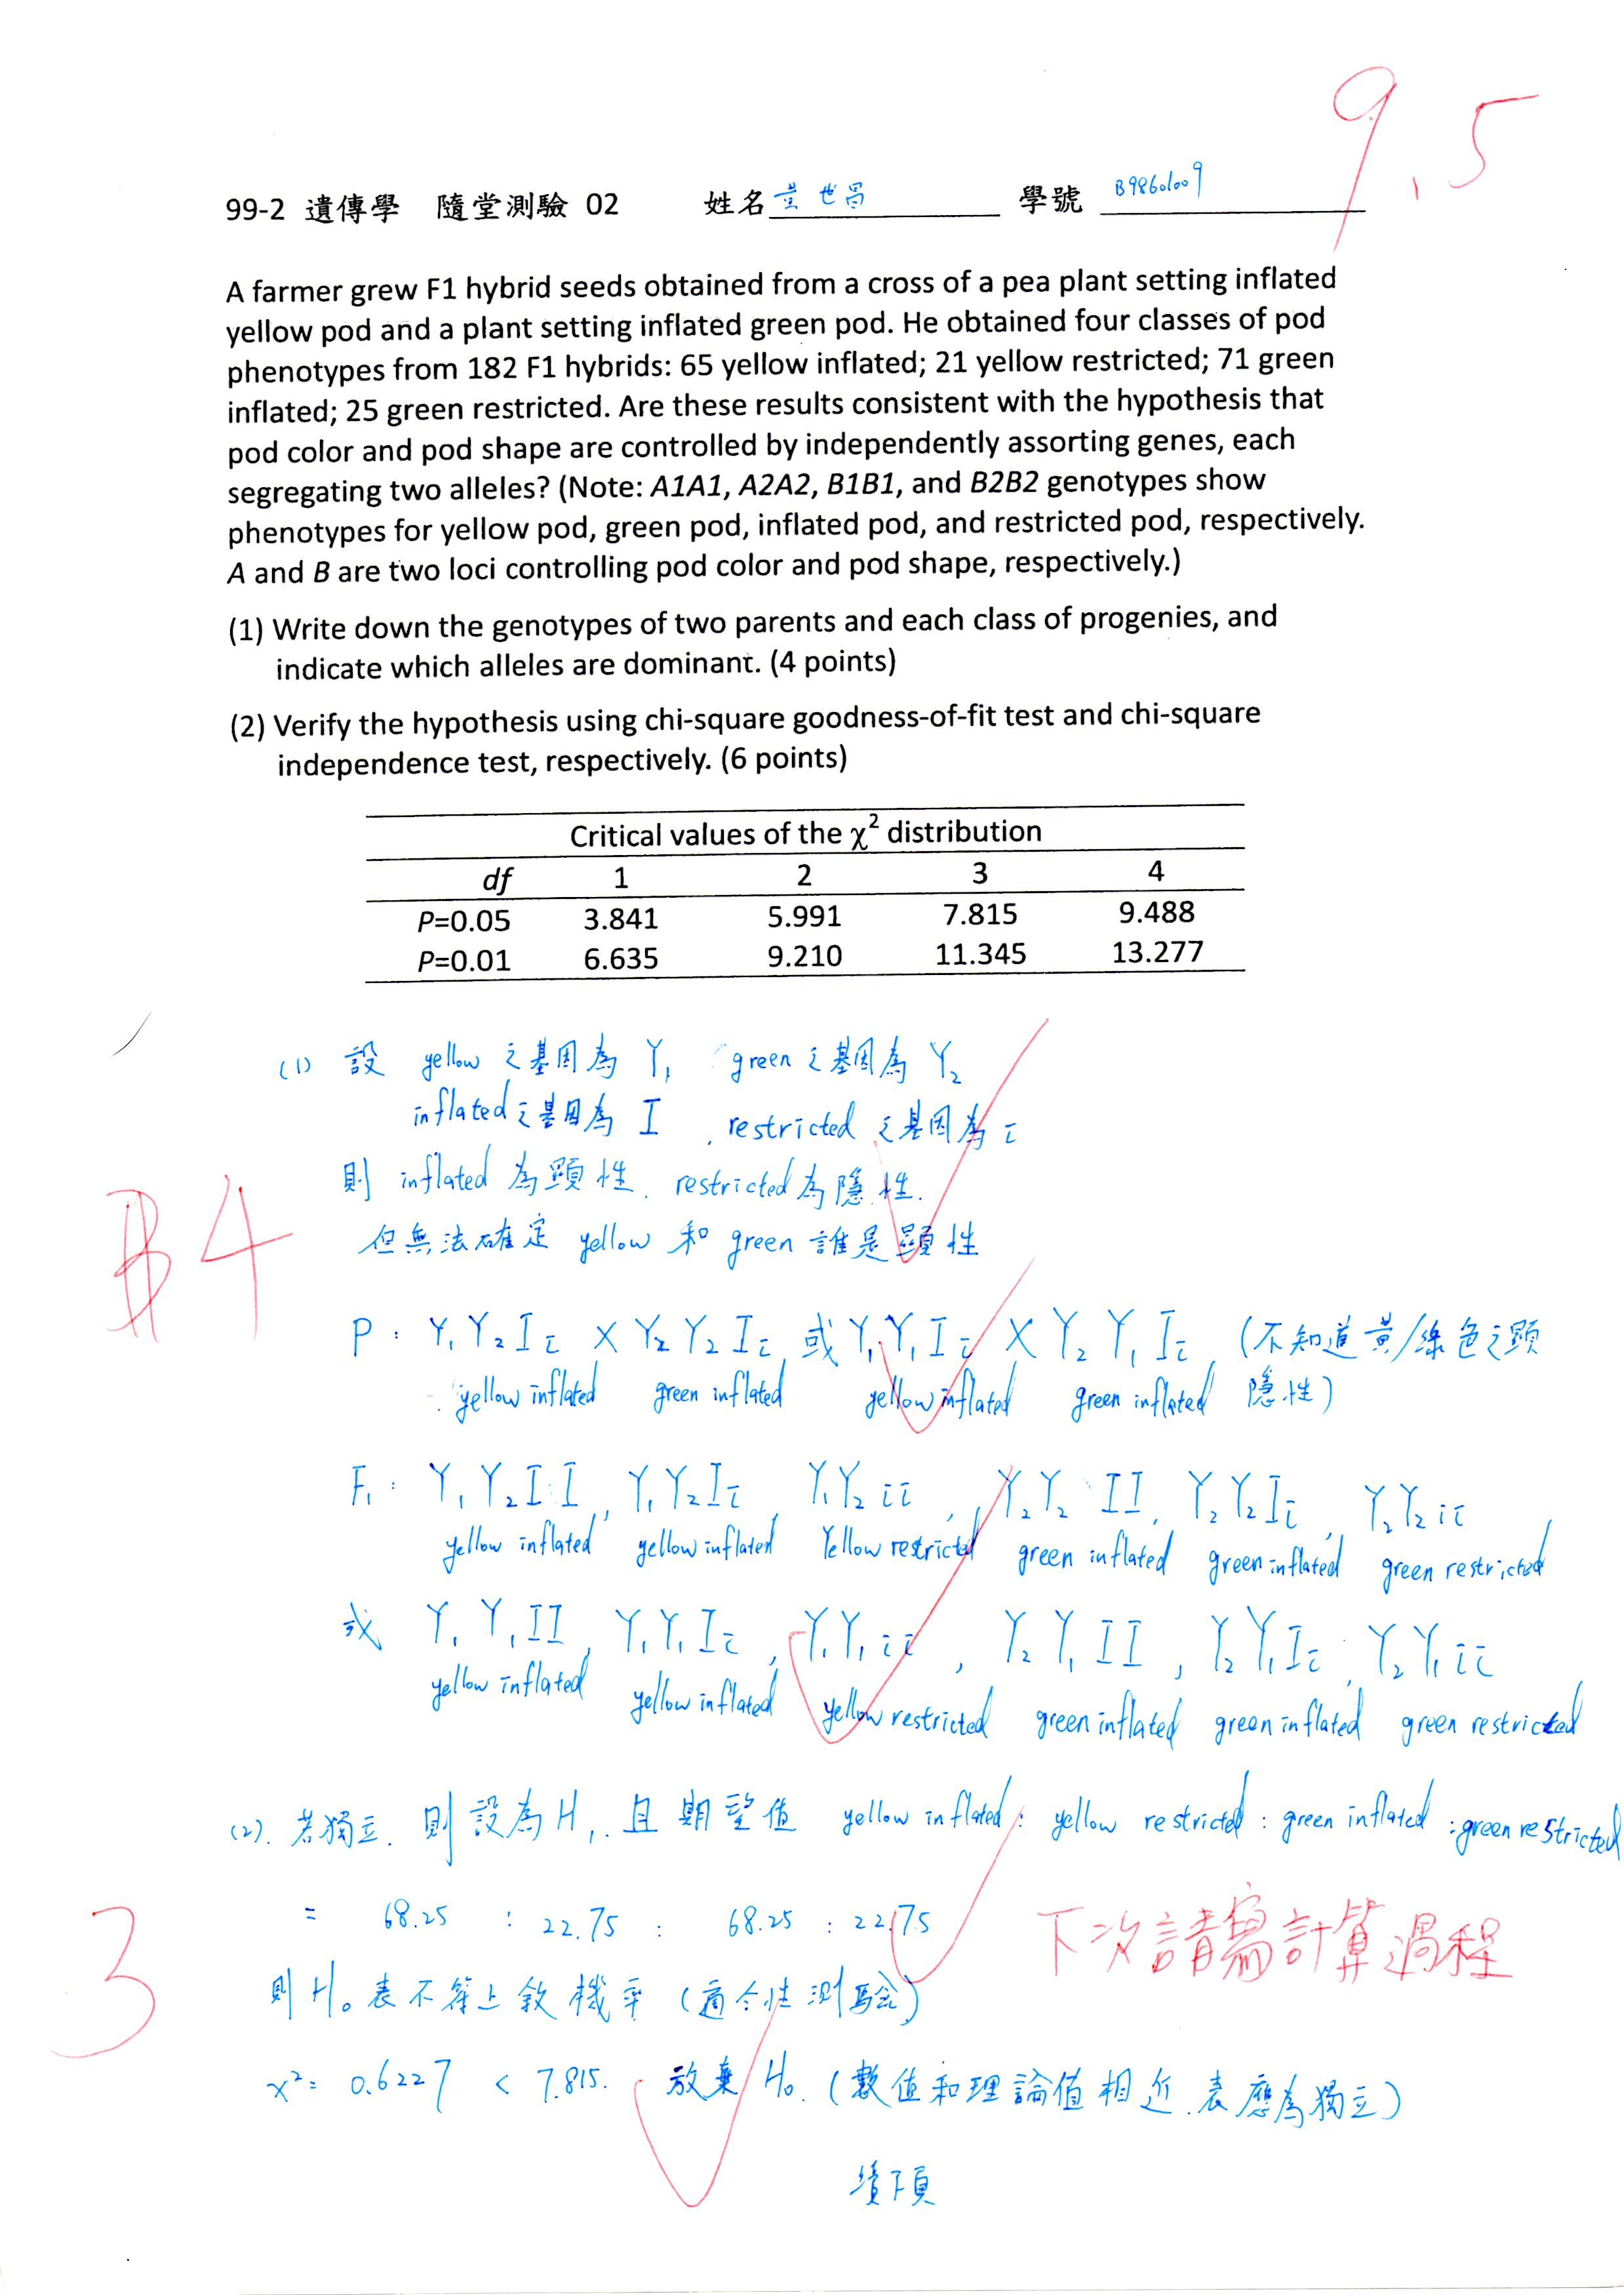 9.5
99-2 遺傳學 隨堂測驗 02 姓名 世昌 學號 B98601009
A farmer grew F1 hybrid seeds obtained from a cross of a pea plant setting inflated
yellow pod and a plant setting inflated green pod. He obtained four classes of pod
phenotypes from 182 F1 hybrids: 65 yellow inflated; 21 yellow restricted; 71 green
inflated; 25 green restricted. Are these results consistent with the hypothesis that
pod color and pod shape are controlled by independently assorting genes, each
segregating two alleles? (Note: A1A1, A2A2, B1B1, and B2B2 genotypes show
phenotypes for yellow pod, green pod, inflated pod, and restricted pod, respectively.
A and B are two loci controlling pod color and pod shape, respectively.)
(1) Write down the genotypes of two parents and each class of progenies, and
indicate which alleles are dominant. (4 points)
(2) Verify the hypothesis using chi-square goodness-of-fit test and chi-square
independence test, respectively. (6 points)
Critical values of the χ² distribution
df 1 2 3 4
P=0.05 3.841 5.991 7.815 9.488
P=0.01 6.635 9.210 11.345 13.277
(1) 設 yellow 之基因為 Y₁ green 之基因為 Y₂
inflated 之基因為 I , restricted 之基因為 i
則 inflated 為顯性. restricted 為隱性.
但無法確定 yellow 和 green 誰是顯性
4
P: Y₁Y₂Ii X Y₂Y₂Ii 或 Y₁Y₁Ii X Y₂Y₁Ii (不知道黃/綠色之顯
yellow inflated green inflated yellow inflated green inflated 隱性)
F₁: Y₁Y₂II, Y₁Y₂Ii, Y₁Y₂ii, Y₂Y₂II, Y₂Y₂Ii, Y₂Y₂ii
yellow inflated yellow inflated Yellow restricted green inflated green inflated green restricted
或 Y₁Y₁II, Y₁Y₁Ii, Y₁Y₁ii, Y₂Y₁II, Y₂Y₁Ii, Y₂Y₁ii
yellow inflated yellow inflated yellow restricted green inflated green inflated green restricted
(2). 若獨立. 則設為H₁. 且期望值 yellow inflated : yellow restricted : green inflated : green restricted
= 68.25 : 22.75 : 68.25 : 22.75
下次請寫計算過程
3
則 H₀ 表不符上敘機率 (適合性測驗)
x²= 0.6227 < 7.815. 放棄 H₀. (數值和理論值相近.表應為獨立)
續下頁